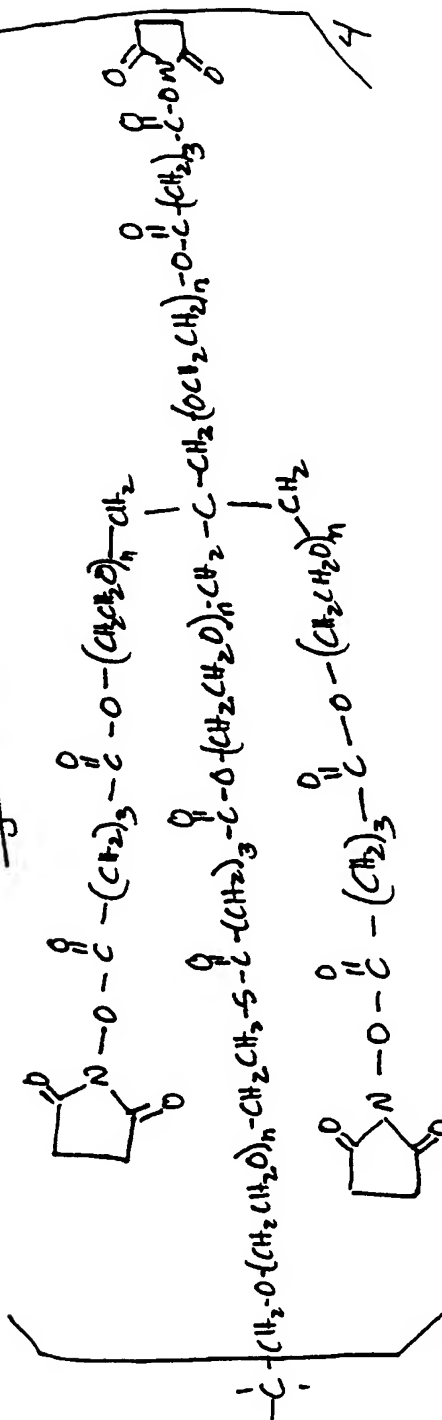 O O O
N-O-C-(CH2)3-C-O-(CH2CH2O)n-CH2
O
O O O O O
-C-CH2-O-(CH2CH2O)n-CH2CH2-S-C-(CH2)3-C-O-(CH2CH2O)n-CH2-C-CH2(OCH2CH2)n-O-C-(CH2)3-C-ON
O
O O O
N-O-C-(CH2)3-C-O-(CH2CH2O)n-CH2
O
4